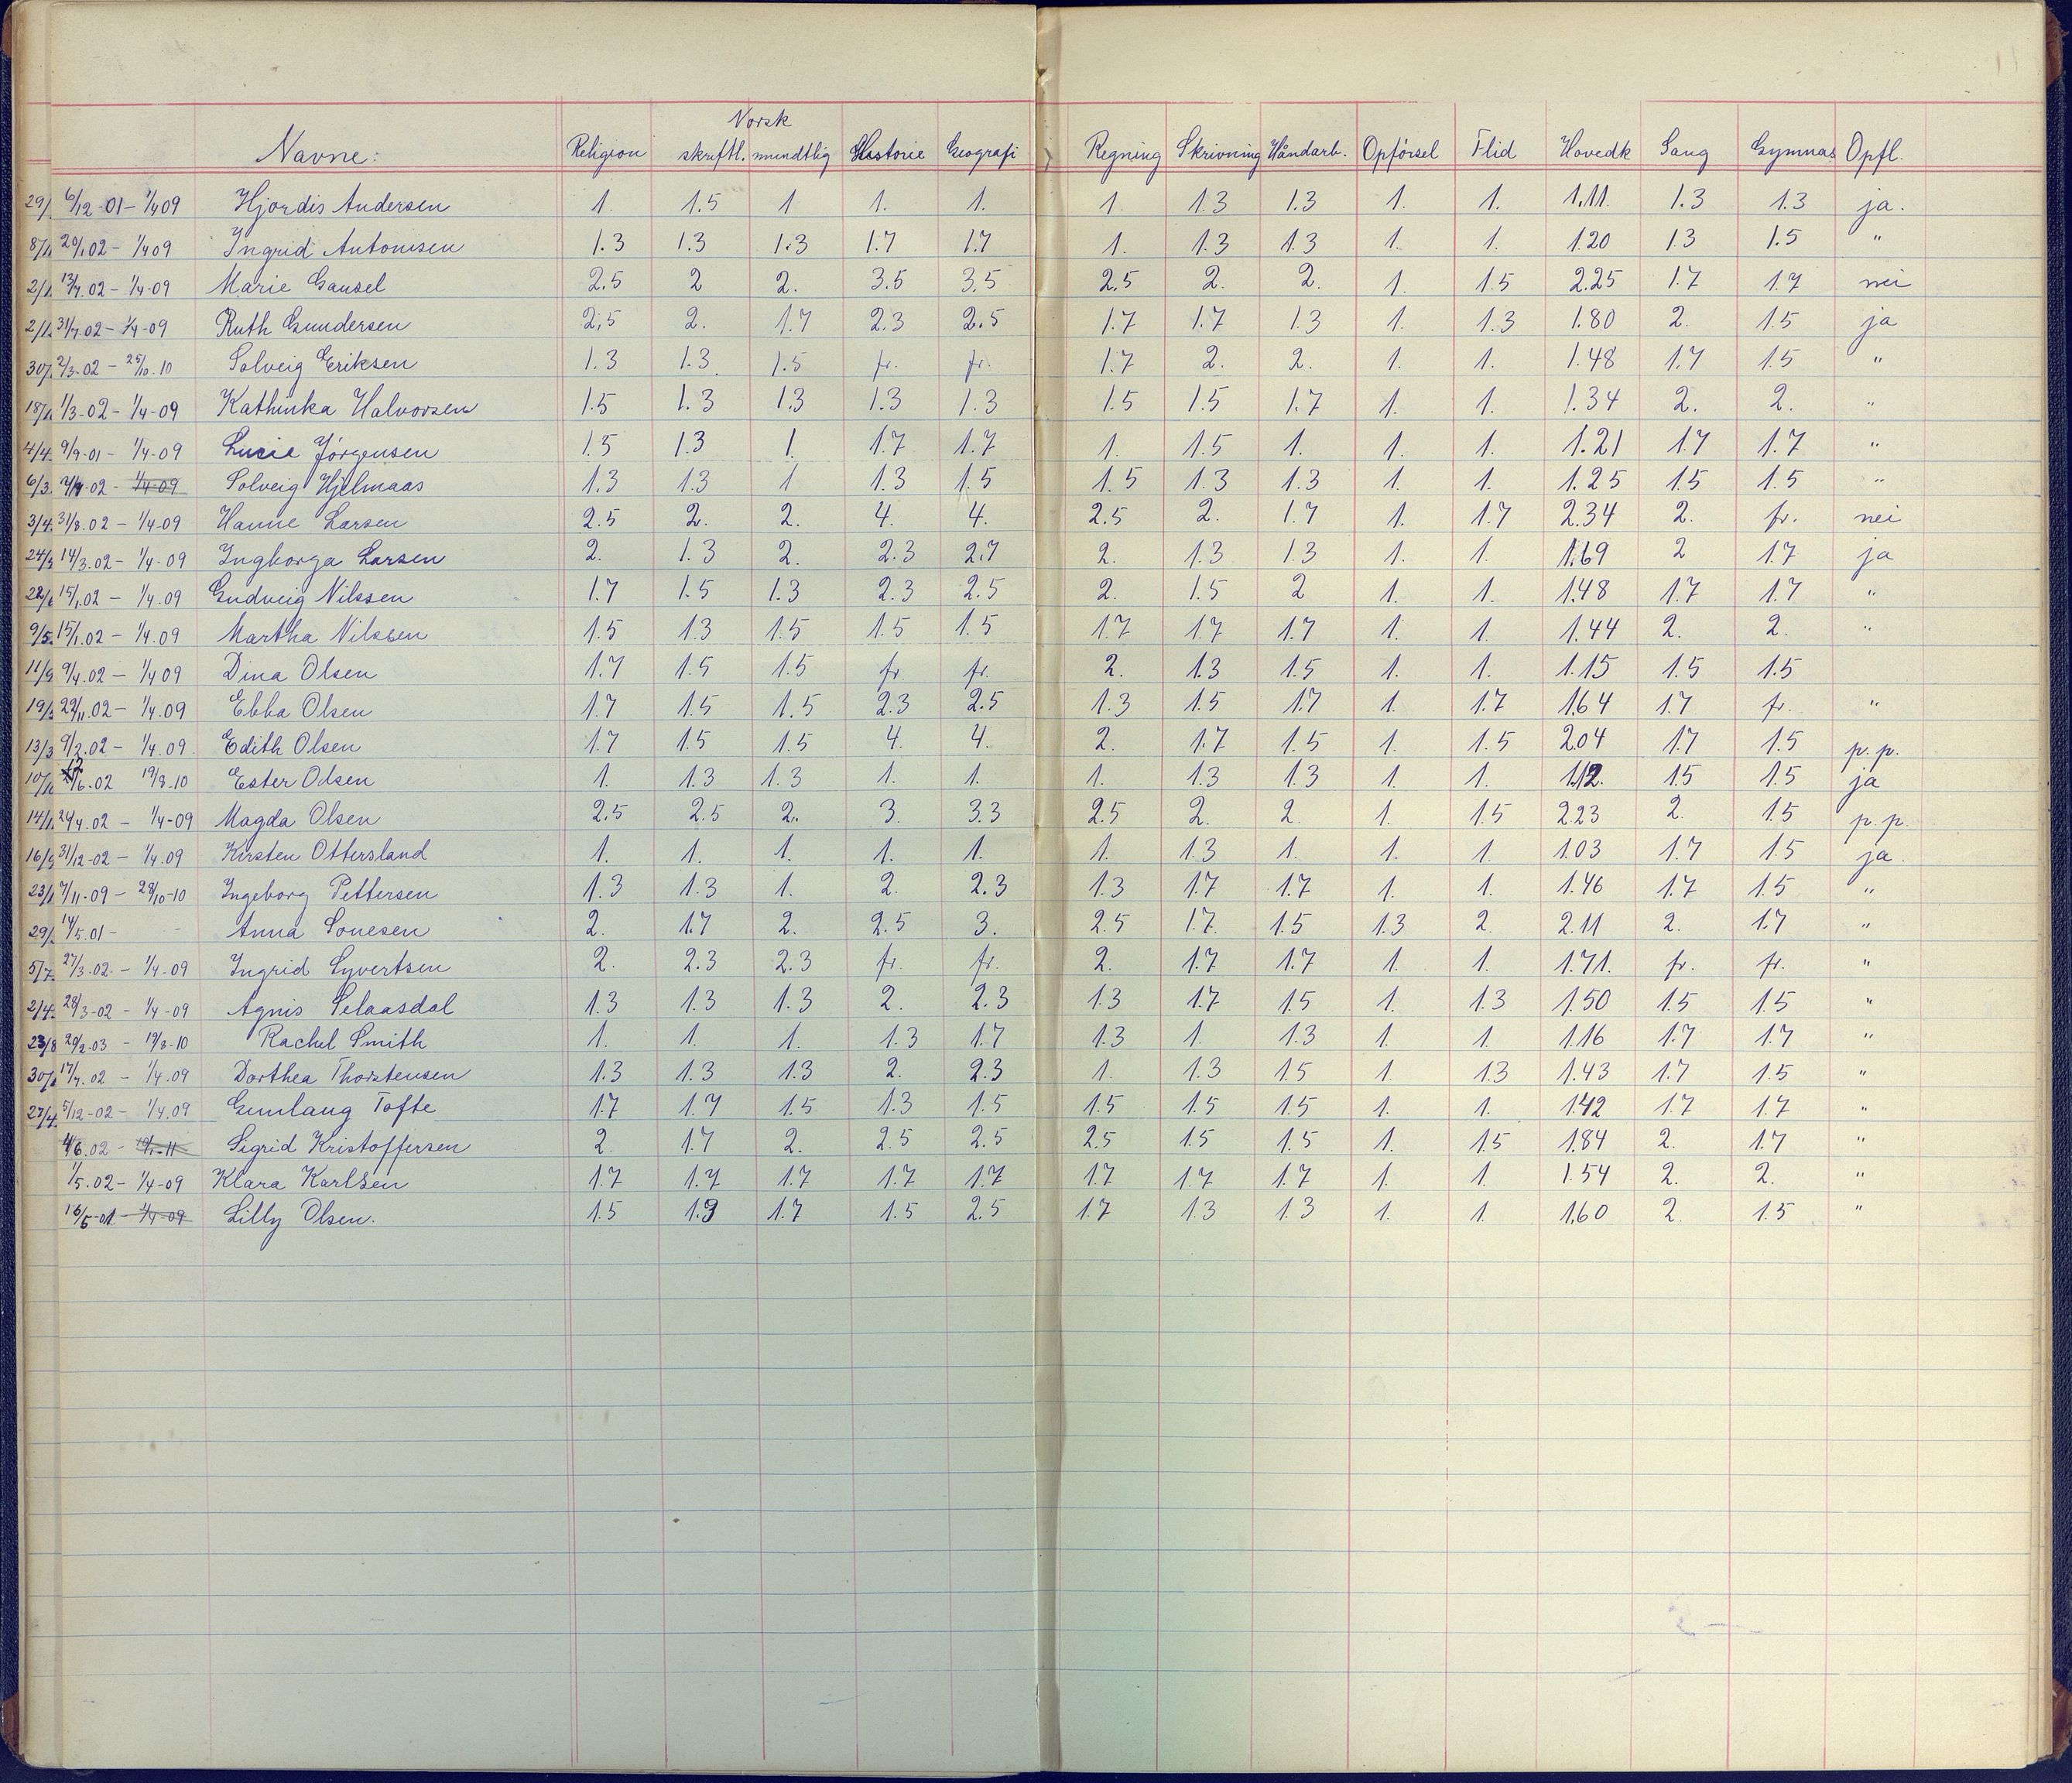 Norsk
Navne: Religion skriftl. mundtlig Historie Geografi Regning Skrivning Håndarb. Opførsel Flid Hovedk Sang Gymnas Opfl.
29/ 6/12-01 - 1/4 09 Hjordis Andersen 1. 1.5 1 1. 1. 1. 1.3 1.3 1. 1. 1.11. 1.3 1.3 ja.
8/1 20/1.02 - 1/4 09 Ingrid Antonisen 1.3 1.3 1.3 1.7 1.7 1. 1.3 1.3 1. 1. 1.20 1.3 1.5 "
2/1 13/7.02 - 1/4-09 Marie Gausel 2.5 2 2. 3.5 3.5 2.5 2. 2. 1. 1.5 2.25 1.7 1.7 nei
2/1 31/7.02 - 1/4-09 Ruth Gundersen 2.5 2. 1.7 2.3 2.5 1.7 1.7 1.3 1. 1.3 1.80 2. 1.5 ja
30/ 2/3.02 - 25/10.10 Solveig Eriksen 1.3 1.3. 1.5 fr. fr. 1.7 2. 2. 1. 1. 1.48 1.7 1.5 "
18/1 1/3-02 - 1/4-09 Kathinka Halvorsen 1.5 1.3 1.3 1.3 1.3 1.5 1.5 1.7 1. 1. 1.34 2. 2. "
4/4. 9/9-01 - 1/4-09 Lucie Jørgensen 1.5 1.3 1. 1.7 1.7 1. 1.5 1. 1. 1. 1.21 1.7 1.7 "
6/3. 02 - 1/4-09 Solveig Hjelmaas 1.3 1.3 1 1.3 1.5 1.5 1.3 1.3 1. 1. 1.25 1.5 1.5 "
3/4. 31/8.02 - 1/4-09 Hanne Larsen 2.5 2. 2. 4. 4. 2.5 2. 1.7 1. 1.7 2.34 2. fr. nei
24/ 14/3.02 - 1/4-09 Ingborga Larsen 2. 1.3 2. 2.3 2.7 2. 1.3 1.3 1. 1. 1.69 2 1.7 ja
22/6 15/1.02 - 1/4.09 Gudveig Nilssen 1.7 1.5 1.3 2.3 2.5 2. 1.5 2 1. 1. 1.48 1.7 1.7 "
9/5. 15/1.02 - 1/4.09 Martha Nilssen 1.5 1.3 1.5 1.5 1.5 1.7 1.7 1.7 1. 1. 1.44 2. 2. "
11/9 9/4.02 - 1/4 09 Dina Olsen 1.7 1.5 1.5 fr. fr. 2. 1.3 1.5 1. 1. 1.15 1.5 1.5
19/ 22/11.02 - 1/4.09 Ebba Olsen 1.7 1.5 1.5 2.3 2.5 1.3 1.5 1.7 1. 1.7 1.64 1.7 fr. "
13/3 9/2.02 - 1/4.09. Edith Olsen 1.7 1.5 1.5 4. 4. 2. 1.7 1.5 1. 1.5 2.04 1.7 1.5 p.p.
10/ 12/6.02 19/8.10 Ester Olsen 1. 1.3 1.3 1. 1. 1. 1.3 1.3 1. 1. 1.12. 1.5 1.5 ja
14/1 24/4.02 - 1/4-09 Magda Olsen 2.5 2.5 2. 3. 3.3 2.5 2. 2. 1. 1.5 2.23 2. 1.5 p.p.
16/9 31/12-02 - 1/4.09 Kirsten Ottersland 1. 1. 1. 1. 1. 1. 1.3 1. 1. 1. 1.03 1.7 1.5 ja.
23/1 7/11-09 - 28/10-10 Ingeborg Pettersen 1.3 1.3 1. 2. 2.3 1.3 1.7 1.7 1. 1. 1.46 1.7 1.5 "
29/ 14/5.01 - Anna Sonesen 2. 1.7 2. 2.5 3. 2.5 1.7. 1.5 1.3 2. 2.11 2. 1.7 "
5/7. 27/3-02. - 1/4-09 Ingrid Syvertsen 2. 2.3 2.3 fr. fr. 2. 1.7 1.7 1. 1. 1.71. fr. fr. "
2/4. 28/3-02 - 1/4-09 Agnis Selaasdal 1.3 1.3 1.3 2. 2.3 1.3 1.7 1.5 1. 1.3 1.50 1.5 1.5 "
23/8 20/2-03 - 19/8-10 Rachel Smith 1. 1. 1. 1.3 1.7 1.3 1. 1.3 1. 1. 1.16 1.7 1.7 "
30/ 17/7.02 - 1/4.09 Dorthea Thorstensen 1.3 1.3 1.3 2. 2.3 1. 1.3 1.5 1. 1.3 1.43 1.7 1.5 "
27/4. 5/12-02 - 1/4.09 Gunlaug Tofte 1.7 1.7 1.5 1.3 1.5 1.5 1.5 1.5 1. 1. 1.42 1.7 1.7 "
4/6.02 - Sigrid Kristoffersen 2. 1.7 2. 2.5 2.5 2.5 1.5 1.5 1. 1.5 1.84 2. 1.7 "
1/5.02 - 1/4-09 Klara Karlsen 1.7 1.7 1.7 1.7 1.7 1.7 1.7 1.7 1. 1. 1.54 2. 2. "
16/5-01 - 1/4-09 Lilly Olsen. 1.5 1.3 1.7 1.5 2.5 1.7 1.3 1.3 1. 1. 1.60 2. 1.5 "